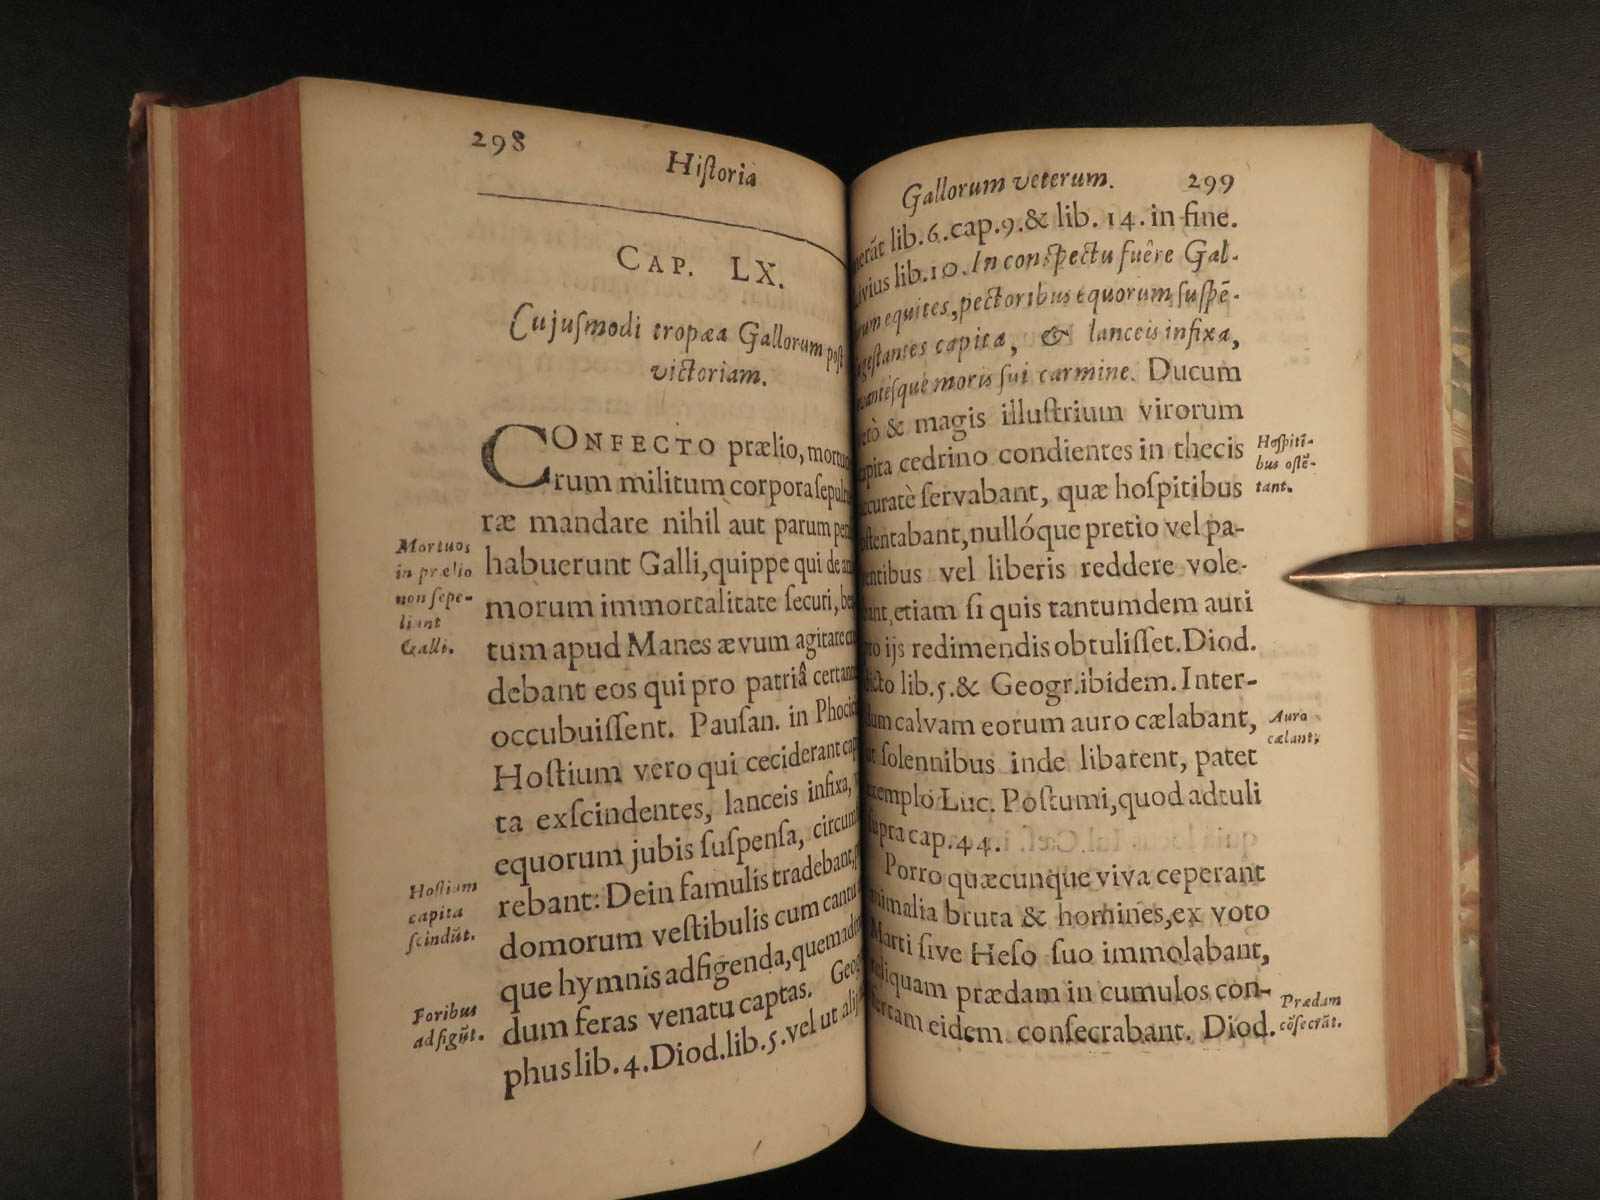 298
Hiſtoria
CAP. LX.
Cujuſmodi tropæa Gallorum poſt
victoriam.
CONFECTO prælio, mortuo
rum militum corpora ſepul
ræ mandare nihil aut parum
habuerunt Galli, quippe qui de
morum immortalitate ſecuri,
tum apud Manes ævum agitare
debant eos qui pro patriâ
occubuiſſent. Pauſan. in
Hoſtium vero qui ceciderant
ta exſcindentes, lanceis infixa,
equorum jubis ſuſpenſa,
rebant: Dein famulis tradebant,
domorum veſtibulis cum cantu
que hymnis adfigenda,
dum feras venatu captas.
phus lib. 4. Diod. lib. 5. vel ut
Mortuos
in prælio
non ſepe-
liunt
Galli.
Hoſtium
capita
ſcindūt.
Foribus
adfigūt.
Gallorum veterum. 299
lib. 6. cap. 9. & lib. 14. in fine.
Livius lib. 10. In conſpectu fuêre Gal-
equites, pectoribus equorum ſuſpē-
geſtantes capita, & lanceis infixa,
moris ſui carmine. Ducum
& magis illuſtrium virorum
cedrino condientes in thecis
ſervabant, quæ hoſpitibus
oſtentabant, nullóque pretio vel pa-
rentibus vel liberis reddere vole-
bant, etiam ſi quis tantumdem auri
pro ijs redimendis obtuliſſet. Diod.
dicto lib. 5. & Geogr. ibidem. Inter-
dum calvam eorum auro cælabant,
ut ſolennibus inde libarent, patet
exemplo Luc. Poſtumi, quod adtuli
ſupra cap. 44.
Porro quæcunque viva ceperant
animalia bruta & homines, ex voto
Marti ſive Heſo ſuo immolabant,
reliquam prædam in cumulos con-
fertam eidem conſecrabant. Diod.
Hoſpiti-
bus oſtē-
tant.
Auro
cælant.
Prædam
cōſecrāt.